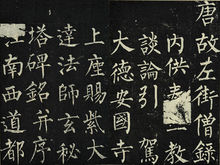 唐故左街僧
内供三教
談論引駕
大德安國寺
上座賜紫大
達法師玄秘
塔碑銘并序
江南西道都